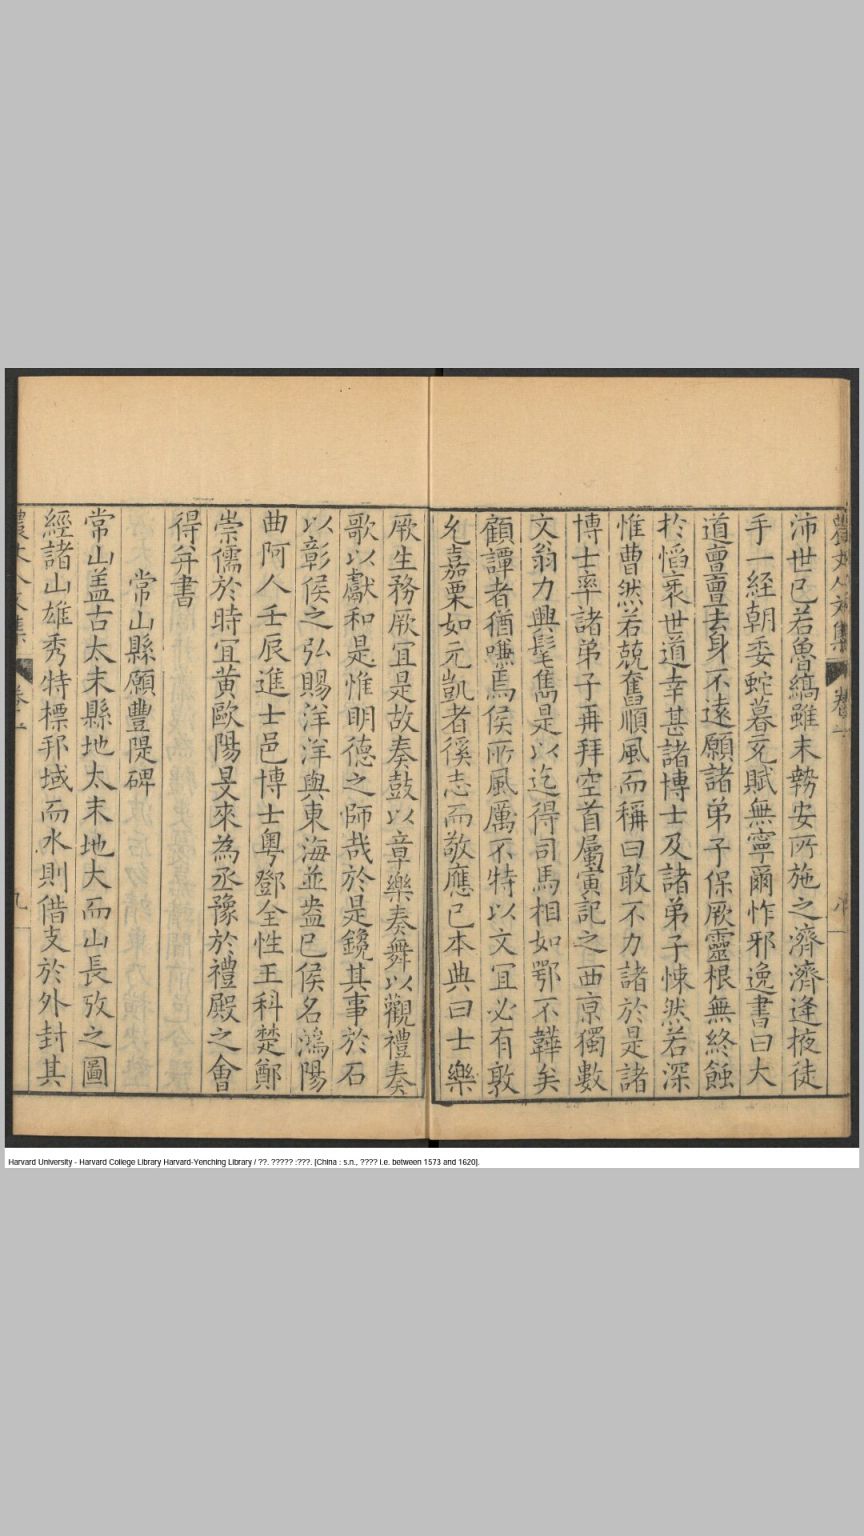 沛世已若魯縞雖末勢安所施之濟濟逢掖徒
手一經朝委蛇暮充賦無寧爾怍邪逸書曰大
道亶亶去身不遠願諸弟子保厥靈根無終蝕
於慆衷世道幸甚諸博士及諸弟子悚然若深
惟曹然若兢奮順風而稱曰敢不力諸於是諸
博士率諸弟子再拜空首屬寅記之西京獨數
文翁力興髦雋是以迄得司馬相如鄂不韡矣
顧譚者猶嗛焉侯所風厲不特以文宜必有敦
允嘉栗如元凱者徯志而敬應已本典曰士樂
厥生務厥宜是故奏鼓以章樂奏舞以觀禮奏
歌以獻和是惟明德之師哉於是鑱其事於石
以彰侯之弘賜洋洋與東海並盎已侯名鴻陽
曲阿人壬辰進士邑博士粵鄧全性王科楚鄭
崇儒於時宜黃歐陽旻來為丞豫於禮殿之會
得并書
常山縣願豐隄碑
常山盖古太末縣地太末地大而山長攷之圖
經諸山雄秀特標邦域而水則偕支於外封其
農丈人文集
卷十
九
Harvard University - Harvard College Library Harvard-Yenching Library / ??. ????? :???. [China : s.n., ???? i.e. between 1573 and 1620].